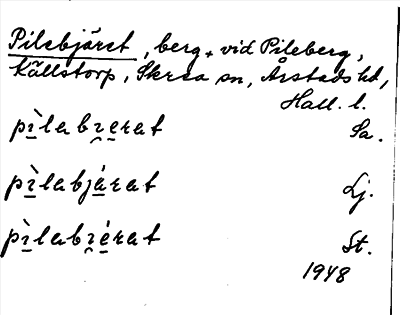 Pilebjäret, berg, vid Pileberg,
Källstorp, Skrea sn, Årstads hd,
Hall. l.
pìlabi̯erat Sa.
pìlabjárat Lj.
pìlabi̯érat St.
1948